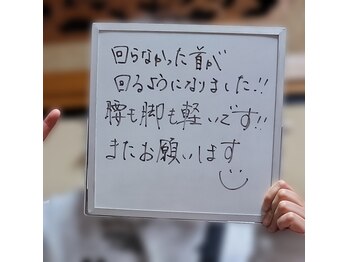 回らなかった首が
回るようになりました!!
腰も脚も軽いです!!
またお願いします